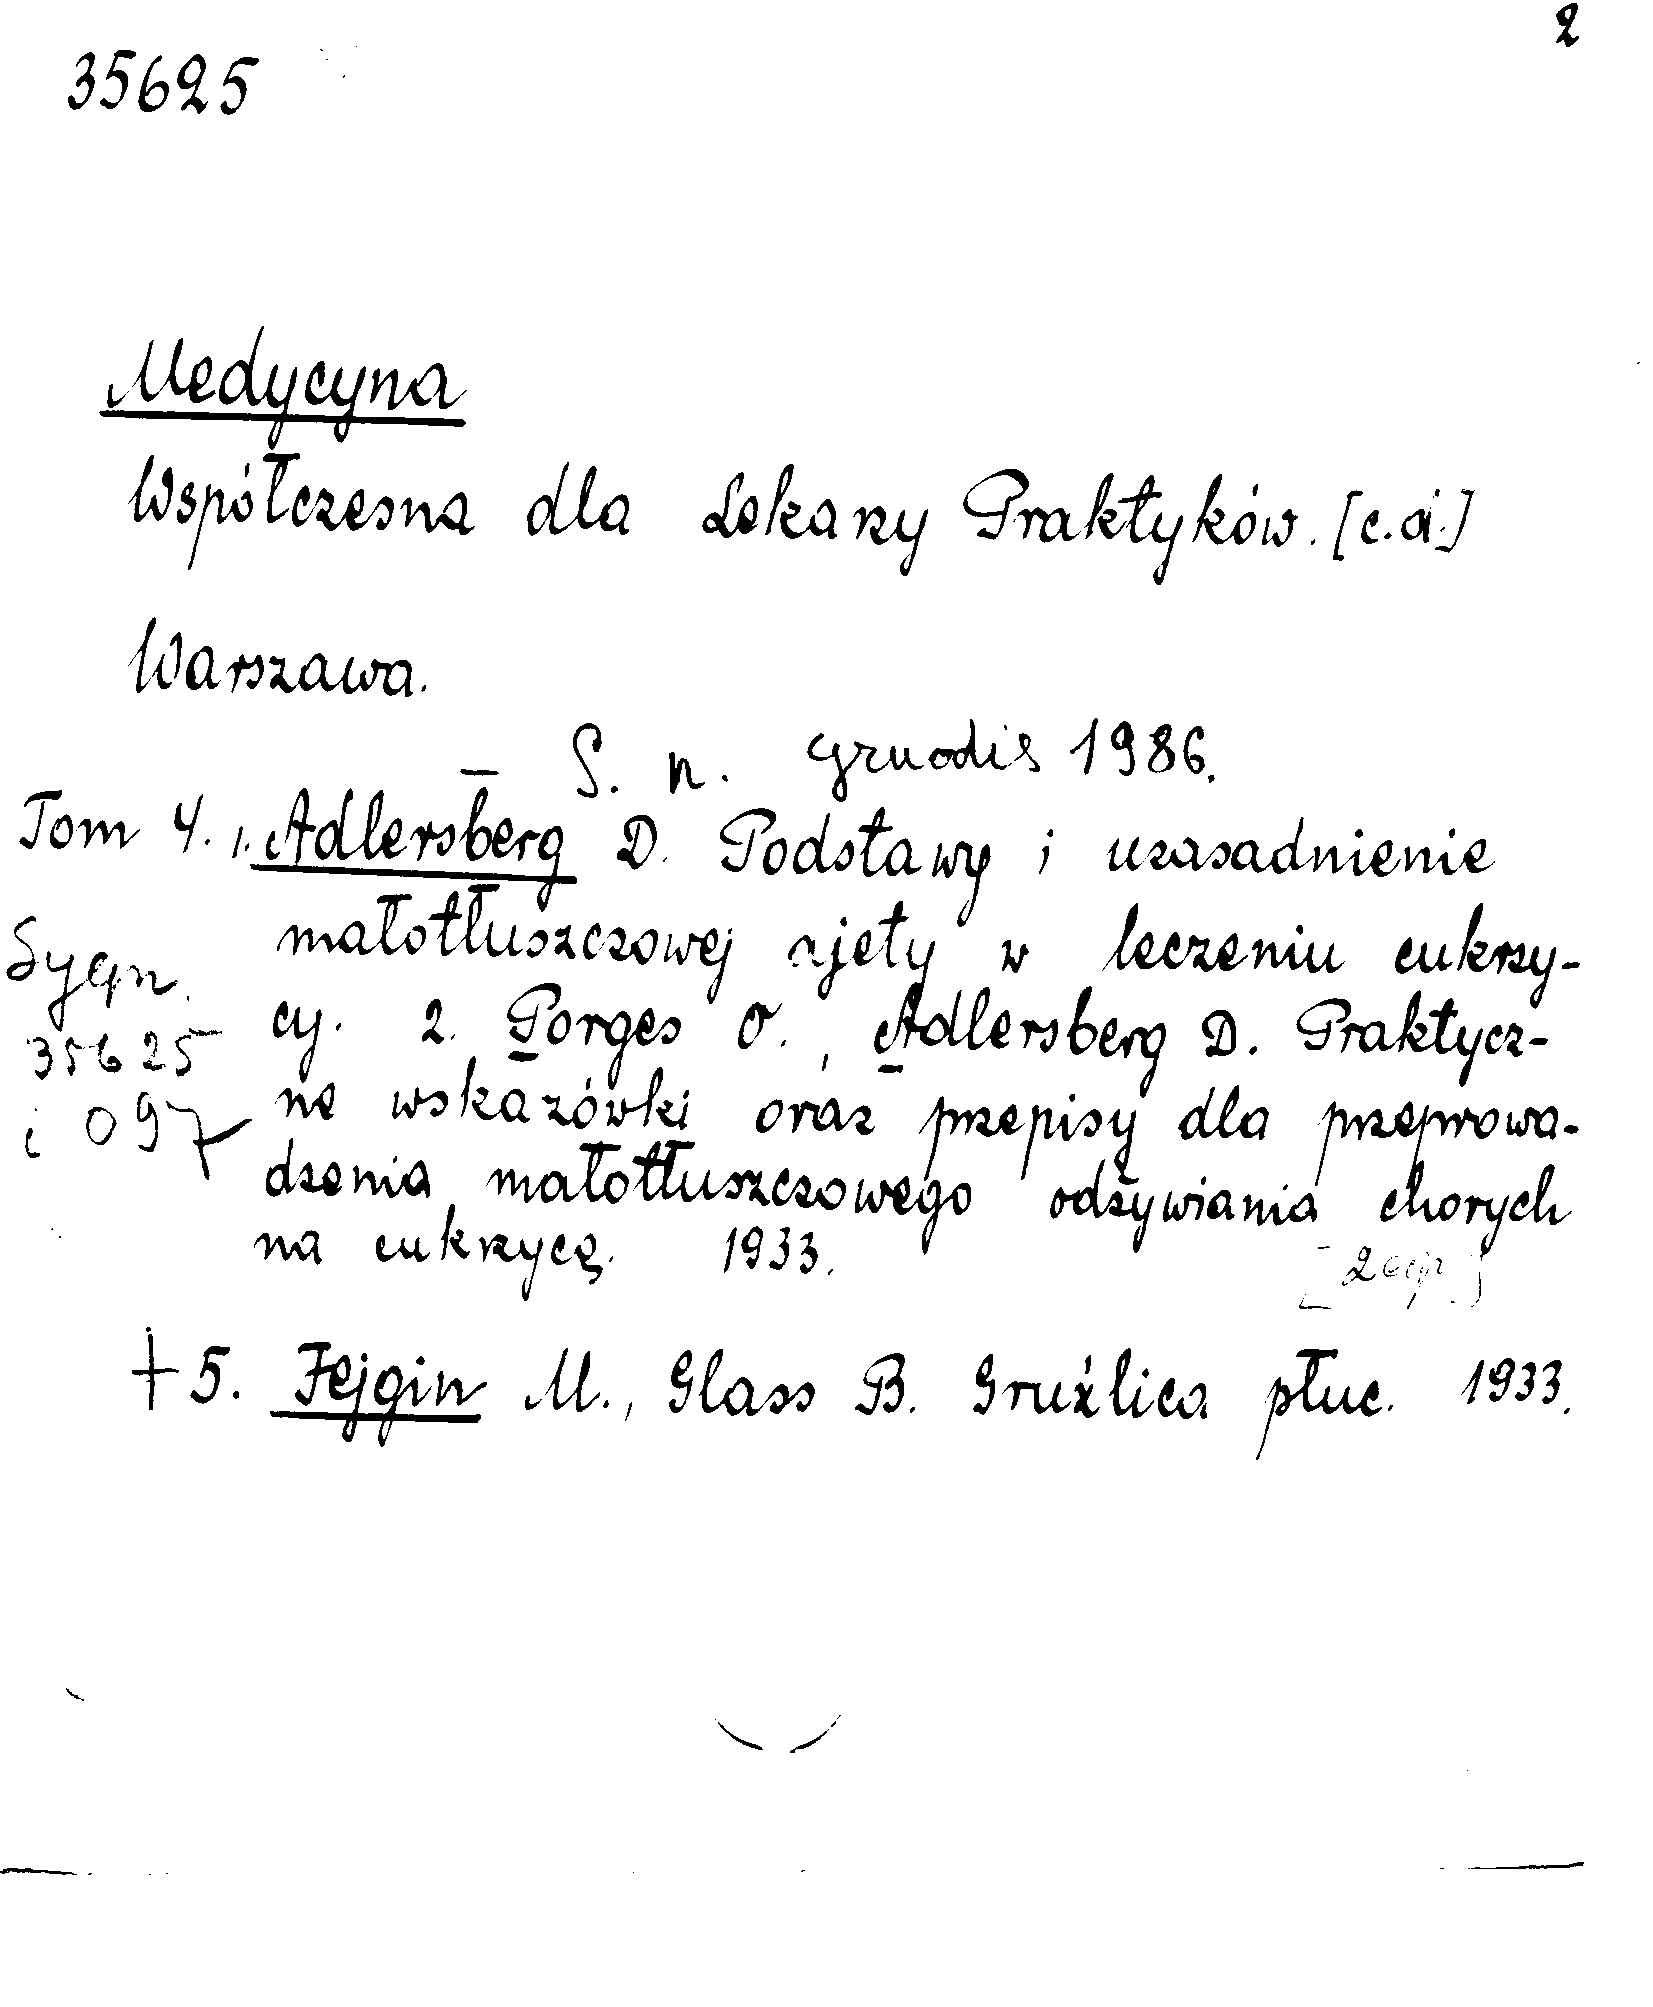 2
35625
Medycyna
Współczesna dla Lekarzy Praktyków. [c.d.]
Warszawa.
S. n. grudzień 1986.
Tom 4. 1. Adlersberg D. Podstawy i uzasadnienie
małotłuszczowej djety w leczeniu cukrzy-
Sygn.
cy. 2. Porges O., Adlersberg D. Praktycz-
35625
ne wskazówki oraz przepisy dla przeprowa-
i 097
dzenia małotłuszczowego odżywiania chorych
na cukrzycę. 1933.
[2 egz.]
+ 5. Fejgin M., Glass B. Gruźlica płuc. 1933.